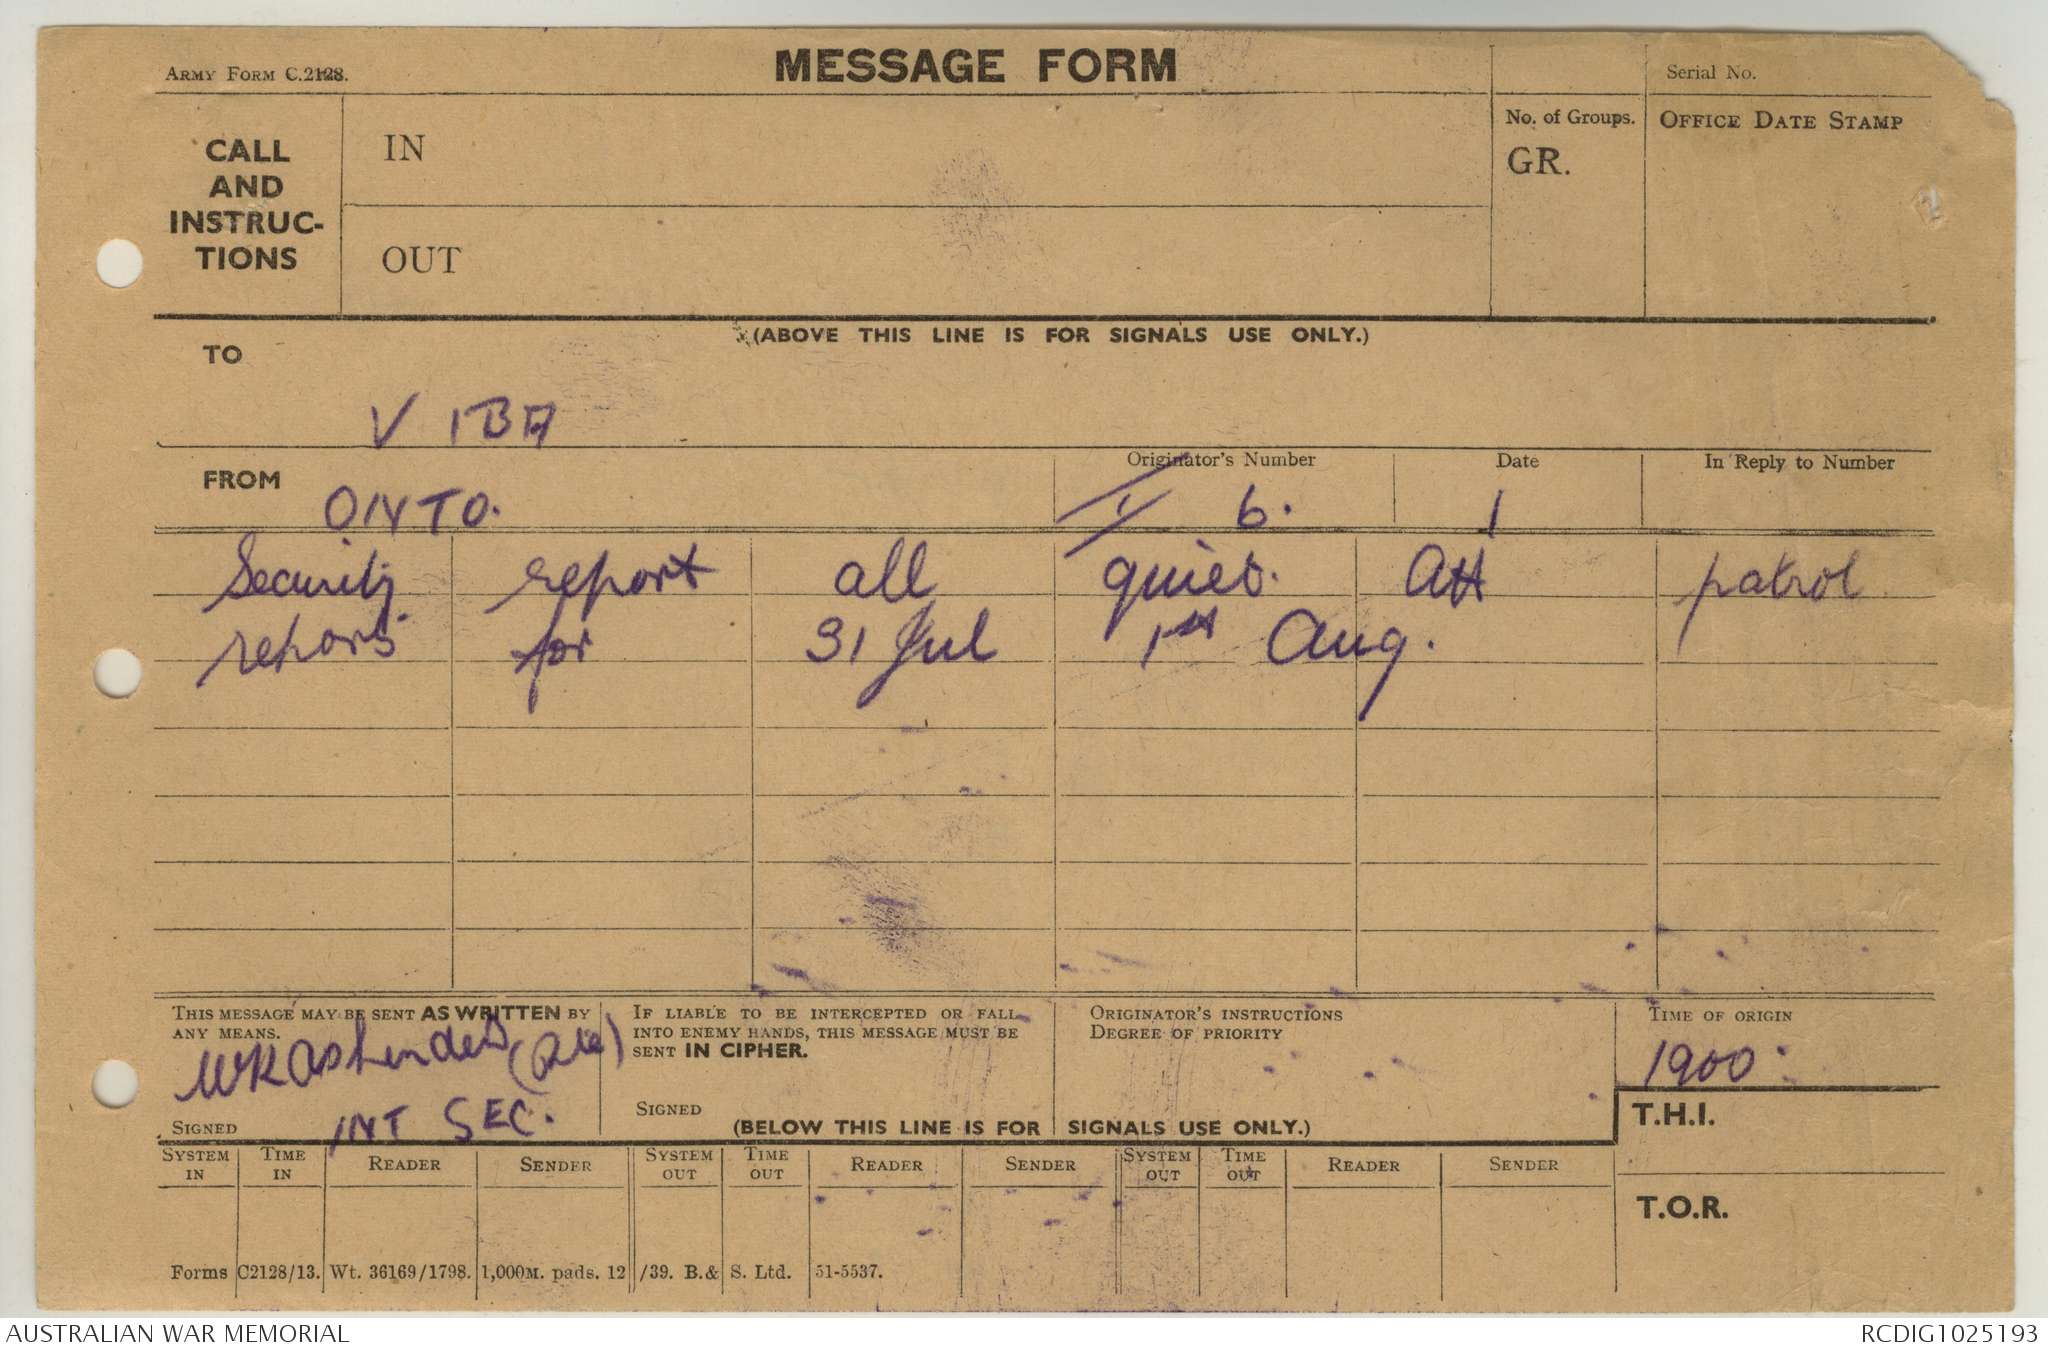 ARMY FORM C.2128.
MESSAGE FORM
Serial No.
CALL AND INSTRUC-TIONS
IN
OUT
No. of Groups.
GR.
OFFICE DATE STAMP
(ABOVE THIS LINE IS FOR SIGNALS USE ONLY.)
TO
V
FROM
Originator's Number
Date
In Reply to Number
I 6.
1
Security report all quiet. Att patrol
reports for 31 Jul 1st Aug.
THIS MESSAGE MAY BE SENT AS WRITTEN BY ANY MEANS.
INT SEC.
SIGNED
IF LIABLE TO BE INTERCEPTED OR FALL INTO ENEMY HANDS, THIS MESSAGE MUST BE SENT IN CIPHER.
SIGNED
ORIGINATOR'S INSTRUCTIONS
DEGREE OF PRIORITY
TIME OF ORIGIN
1900.
T.H.I.
T.O.R.
(BELOW THIS LINE IS FOR SIGNALS USE ONLY.)
SYSTEM IN TIME IN READER SENDER SYSTEM OUT TIME OUT READER SENDER SYSTEM OUT TIME OUT READER SENDER
Forms C2128/13. Wt. 36169/1798. 1,000M. pads. 12 /39. B.& S. Ltd. 51-5537.
AUSTRALIAN WAR MEMORIAL
RCDIG1025193